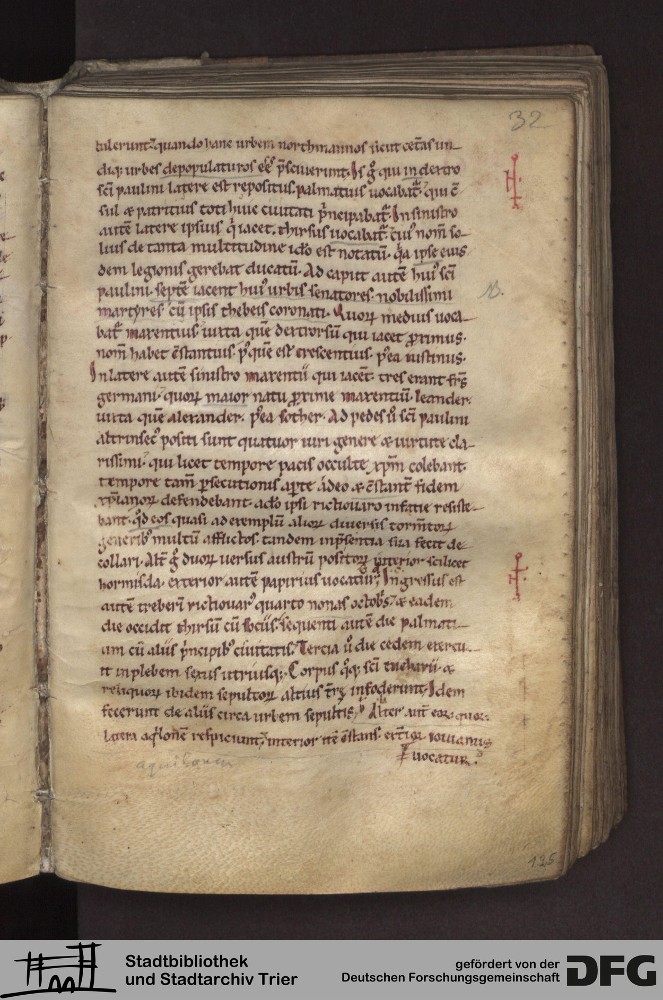 32
tulerunt. quando hanc urbem northmannos sicut cęteras un-
diq; urbes depopulaturos eē p̄sciuerunt. Is g̊ qui in dextro
sc̄i paulini latere est repositus palmatius uocabat᷑. qui c̄-
sul & patritius toti huic ciuitati p̄ncipabat᷑. In sinistro
autē latere ipsius q̇ iacet. thirsus uocabat᷑. cui᷒ nom̄ so-
lius de tanta multitudine ideo est notatū. q̇a ipse eius-
dem legionis gerebat ducatū. Ad caput autē hui᷒ sc̄i
paulini. septē iacent hui᷒ urbis senatores nobilissimi
martyres cū ipsis thebeis coronati. Quoꝝ medius uoca-
bat᷑ maxentius. iuxta quē dextrorsū qui iacet ꝓximus.
nom̄ habet c̄stantius. p᷒ quē est crescentius. p᷒ea iustinus.
In latere autē sinistro maxentii qui iacent. tres erant fr̄s
germani. quoꝝ maior natu ꝓxime maxentiū. leander.
iuxta quē alexander. p᷒ea sother. Ad pedes ū sc̄i paulini
altrinsec᷒ positi sunt quatuor uiri genere & uirtute cla-
rissimi. qui licet tempore pacis occulte xp̄m colebant.
tempore tam̄ ꝑsecutionis aꝑte adeo & c̄stant̄ fidem
xp̄ianoꝝ defendebant. adeo ipsi rictiouaro in facie resiste-
bant. q̇d eos quasi ad exemplū alioꝝ diuersis torm̄toꝝ
generib᷒ multū afflictos. tandem in p̄sentia sua fecit de-
collari. Alt̄ g̊ duoꝝ uersus austrū positoꝝ interior scilicet
hormisda. exterior autē papirius uocatur. Ingressus est
autē treberī rictiouar᷒ quarto nonas octob̄s. & eadem
die occidit thirsū cū sociis. sequenti autē die palmati-
um cū aliis p̄ncipib᷒ ciuitatis. Tercia ū die cedem exercu-
it in plebem sexus utriusq;. Corpus q̊q; sc̄i eucharii &
reliquoꝝ ibidem sepultoꝝ altius t̄rę infoderunt. Idem
fecerunt de aliis circa urbem sepultis. Alter aut̄ eoꝝ quoꝝ
latera aq̇lonē respiciunt. interior itē c̄stans. ext̄ior iouianus
uocatur.
125
Stadtbibliothek
und Stadtarchiv Trier
gefördert von der
Deutschen Forschungsgemeinschaft
DFG